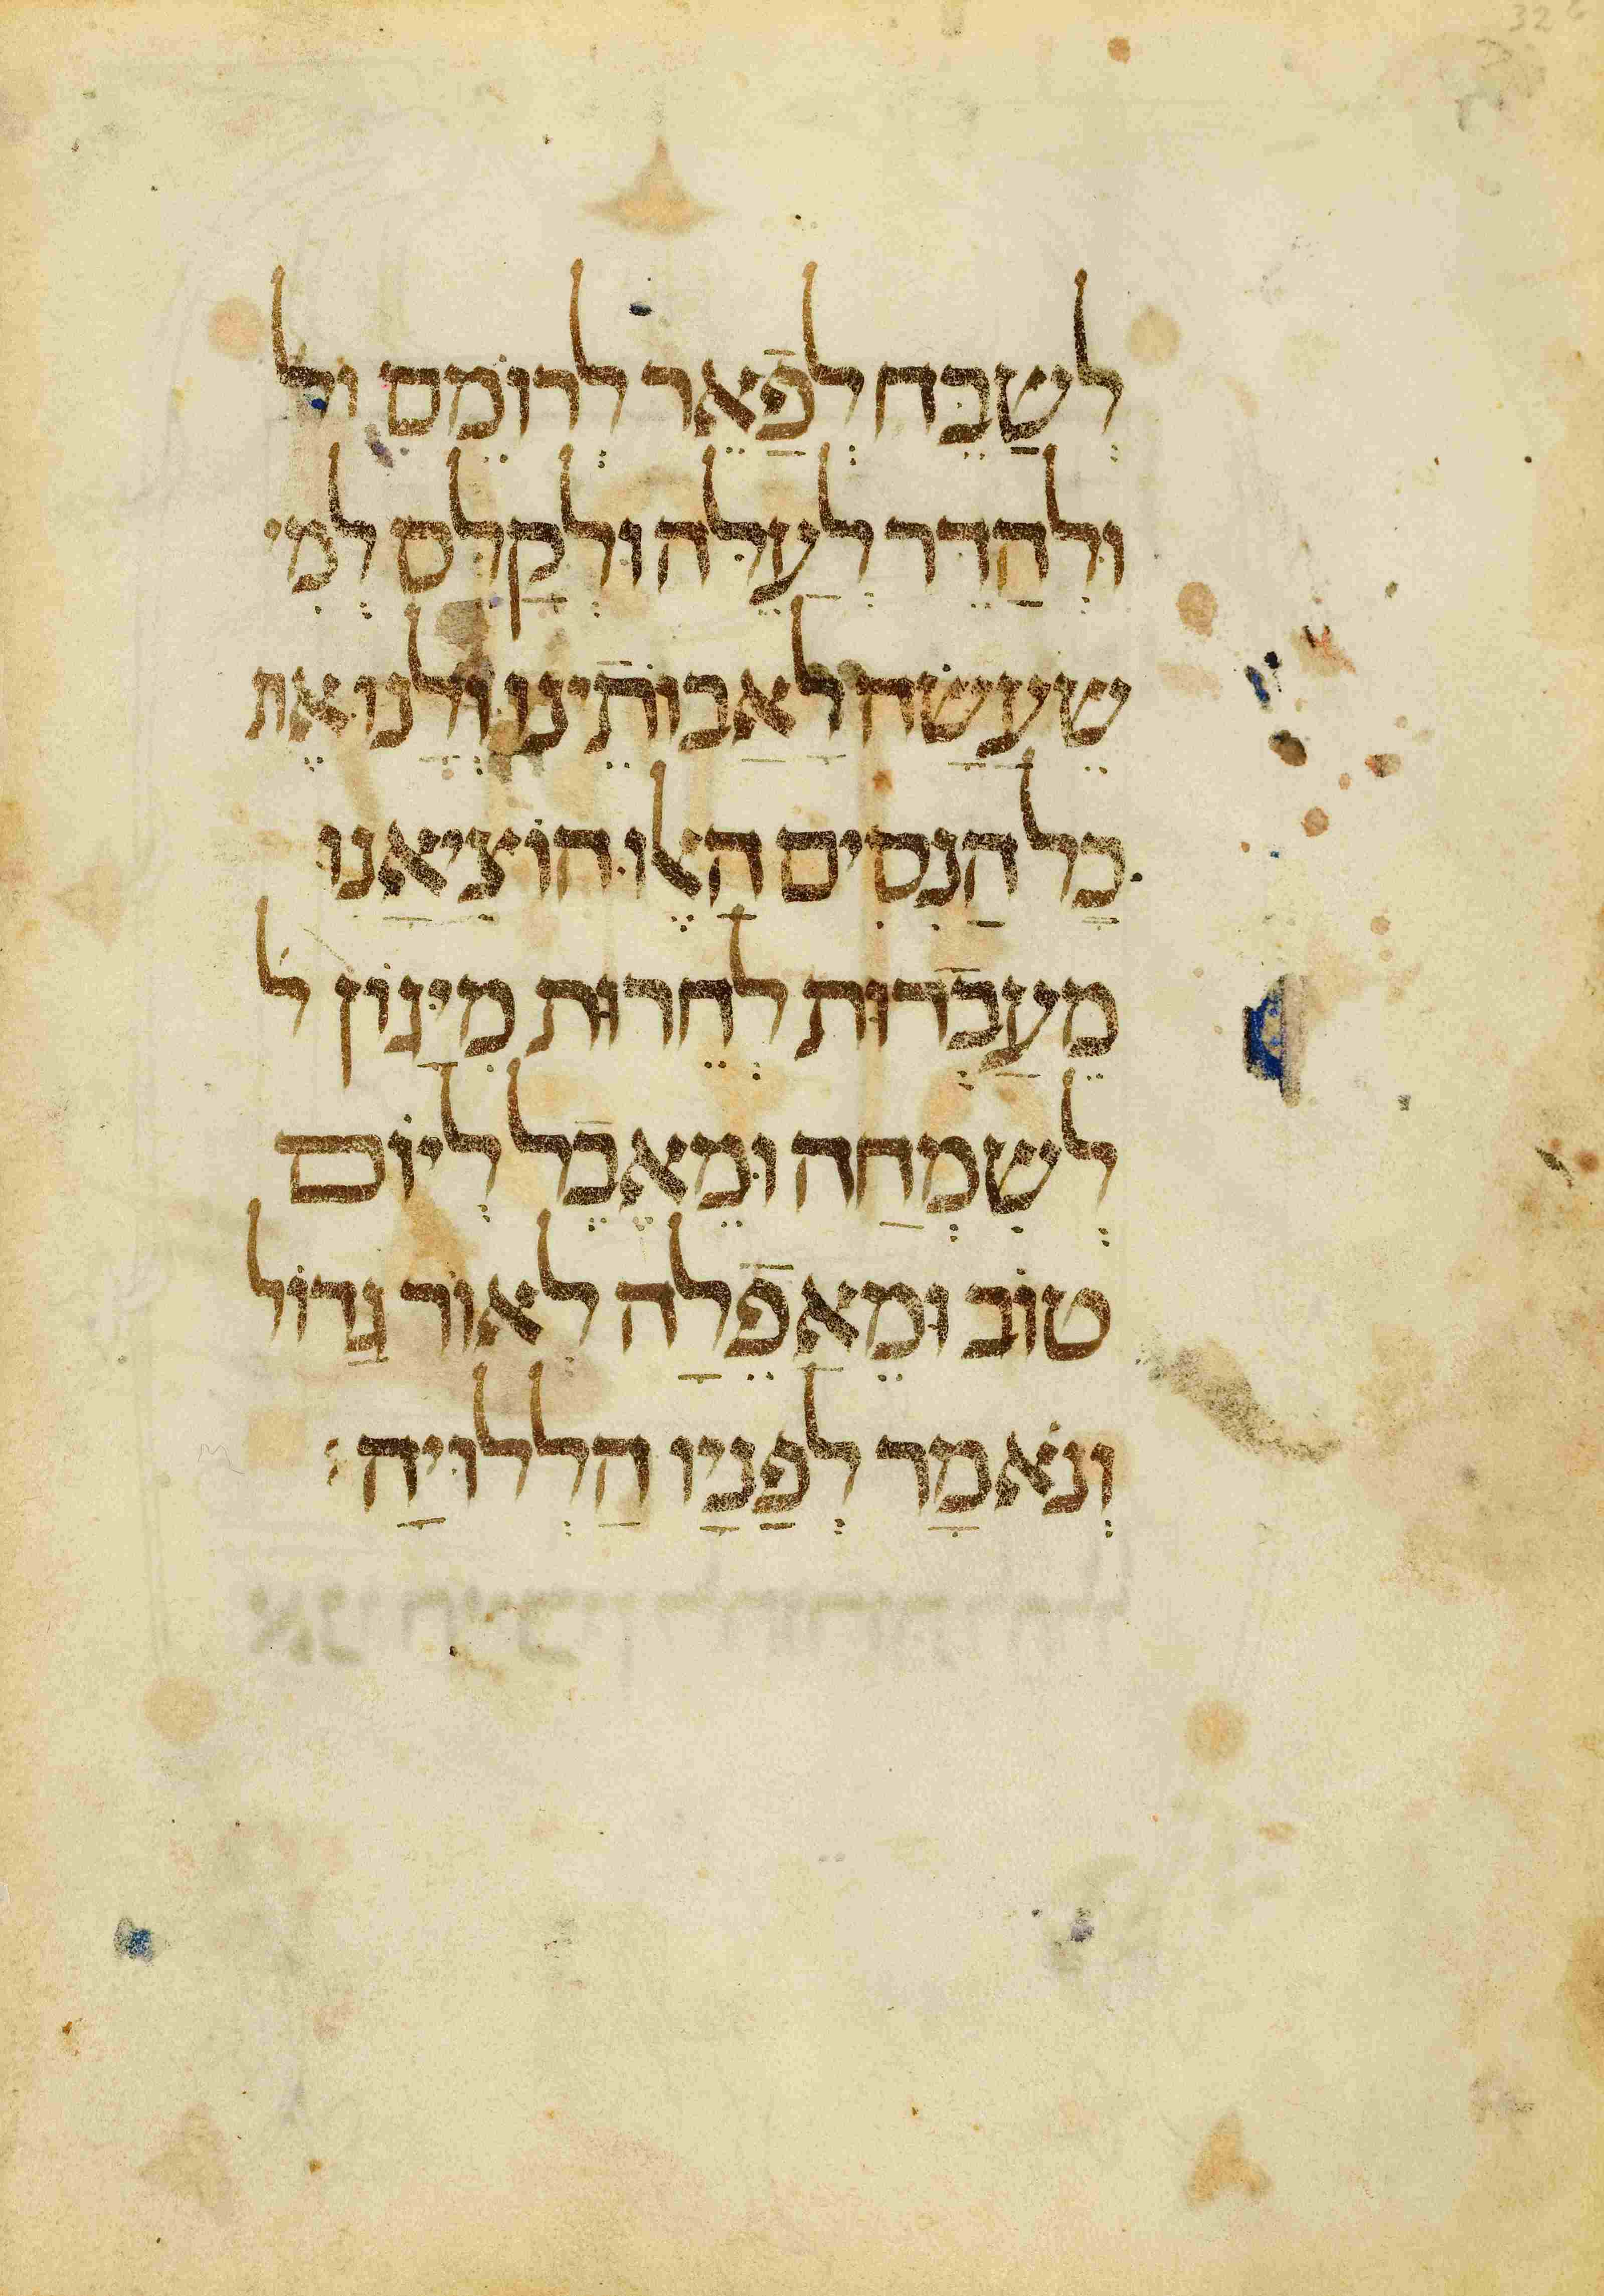 32
לְשַׁבֵּחַ לְפַאֵר לְרוֹמֵם ול
וּלְהַדֵּר לְעַלֵּה וּלְקַלֵּס לְמִי
שֵׁעָשָׂה לַאֲבוֹתֵינוּ וְלָנוּ אֶת
כָּל הַנִּסִּים הָאֵלּוּ הוֹצִיאָנוּ
מֵעַבְדוּת לְחֵרוּת מִיָּגוֹן ל
לְשִׂמְחָה וּמֵאֶבֶל לְיוֹם
טוֹב וּמֵאֲפֵלָה לְאוֹר גָּדוֹל
וְנֹאמַר לְפָנָיו הַלְלוּיָהּ׃